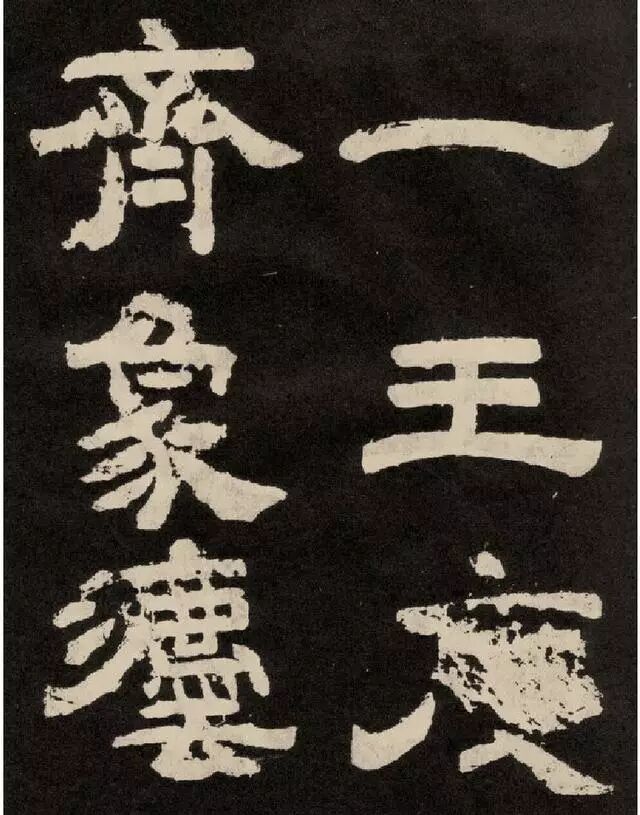 一王度
齊象灋